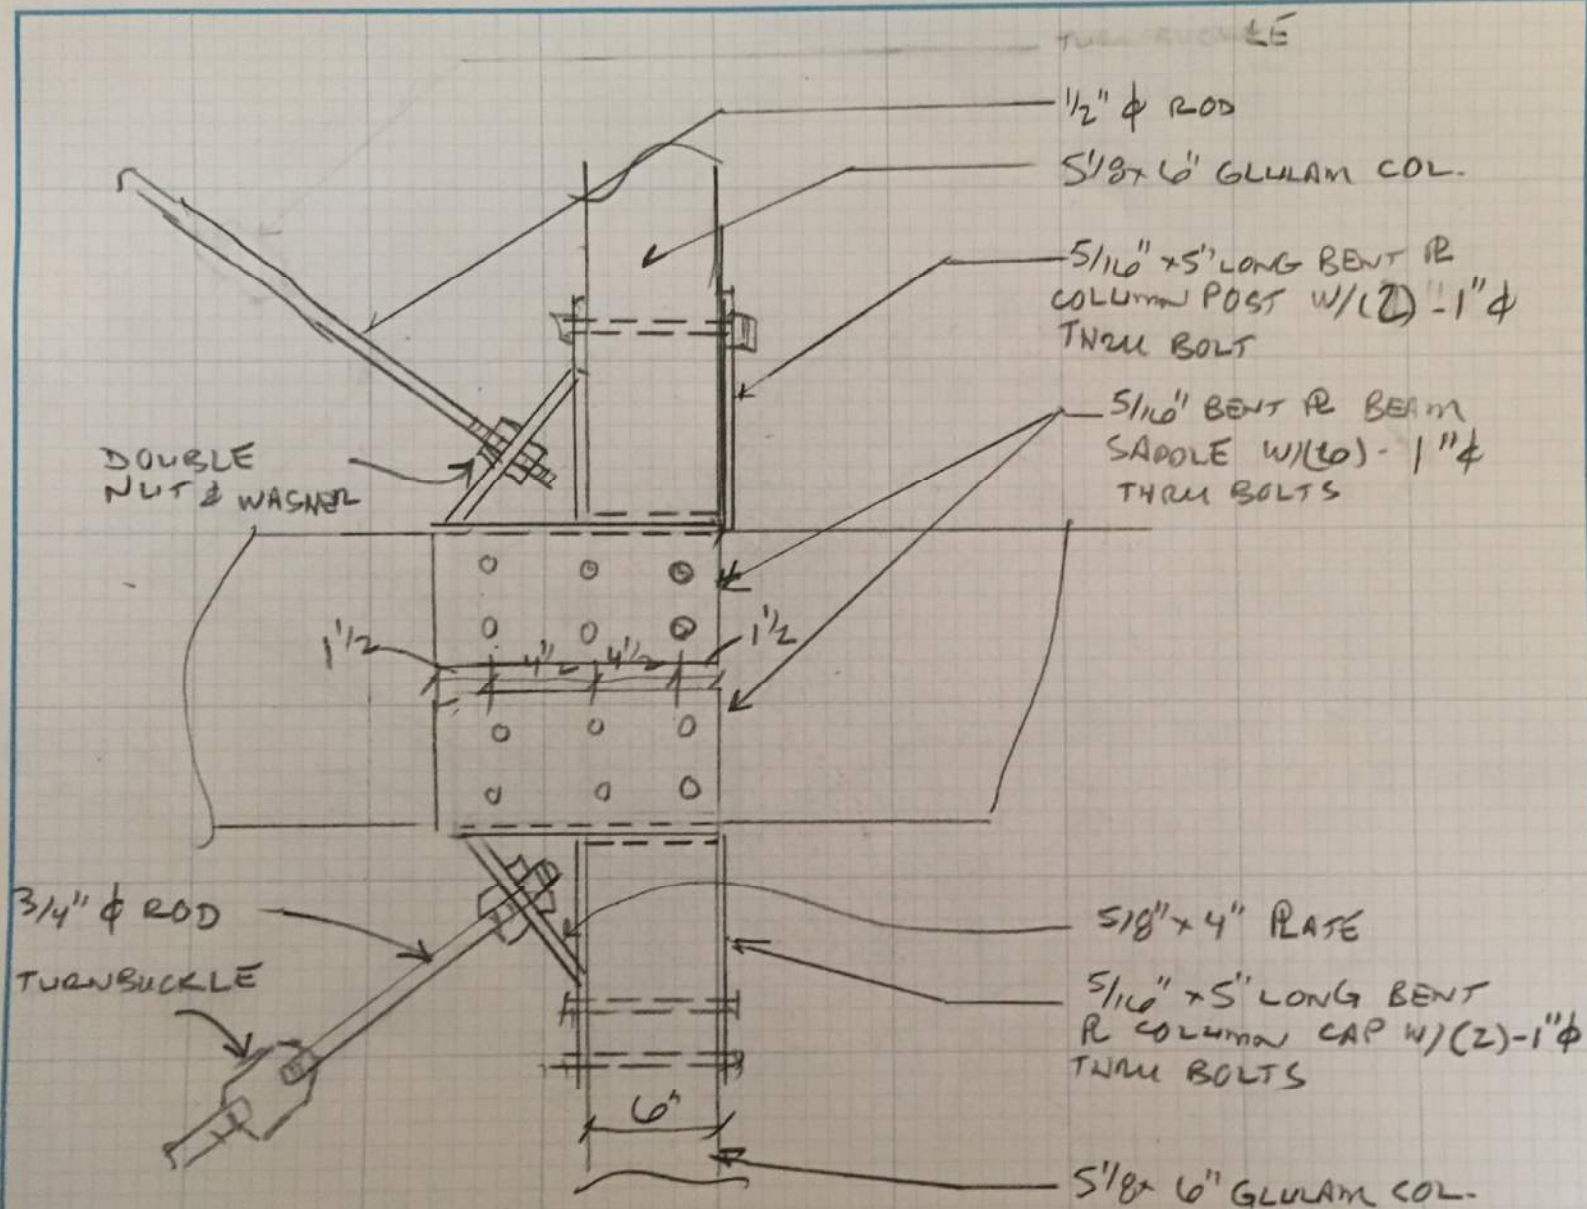 TURNBUCKLE
1/2" ⌀ ROD
5 1/8 x 6" GLULAM COL.
5/16" x 5" LONG BENT PL
COLUMN POST W/(2) - 1" ⌀
THRU BOLT
5/16" BENT PL BEAM
SADDLE W/(6) - 1" ⌀
THRU BOLTS
DOUBLE
NUT & WASHER
1 1/2 4 1/2 4 1/2 1 1/2
3/4" ⌀ ROD
TURNBUCKLE
5/8" x 4" PLATE
5/16" x 5" LONG BENT
PL COLUMN CAP W/(2) - 1" ⌀
THRU BOLTS
6"
5 1/8 x 6" GLULAM COL.